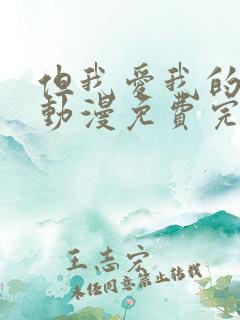 但我愛我的
動漫免費完
王志宏
未经同意禁止转载